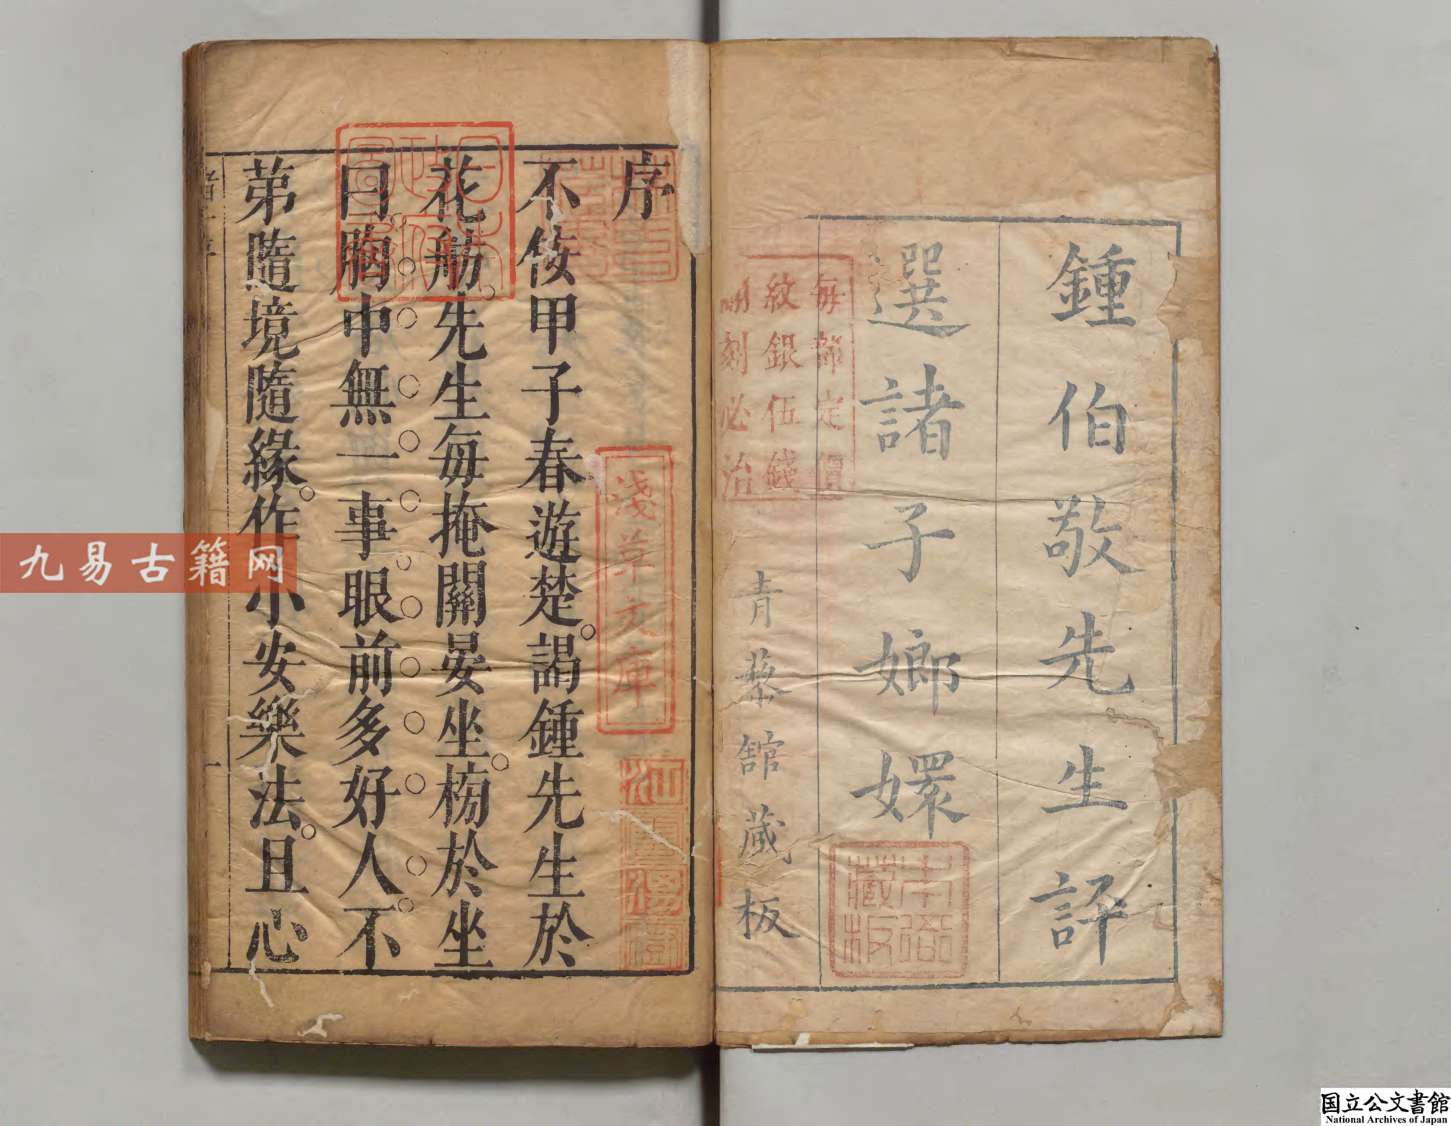 鍾伯敬先生評
選諸子嫏嬛
青藜舘藏板
每部定價
紋銀伍錢
翻刻必治
本衙
藏板
序
不佞甲子春遊楚謁鍾先生於
花舫先生每掩關晏坐榜於坐
曰胸中無一事眼前多好人不
第隨境隨緣作小安樂法且心
淺草文庫
日本
政府
圖書
九易古籍网
国立公文書館
National Archives of Japan